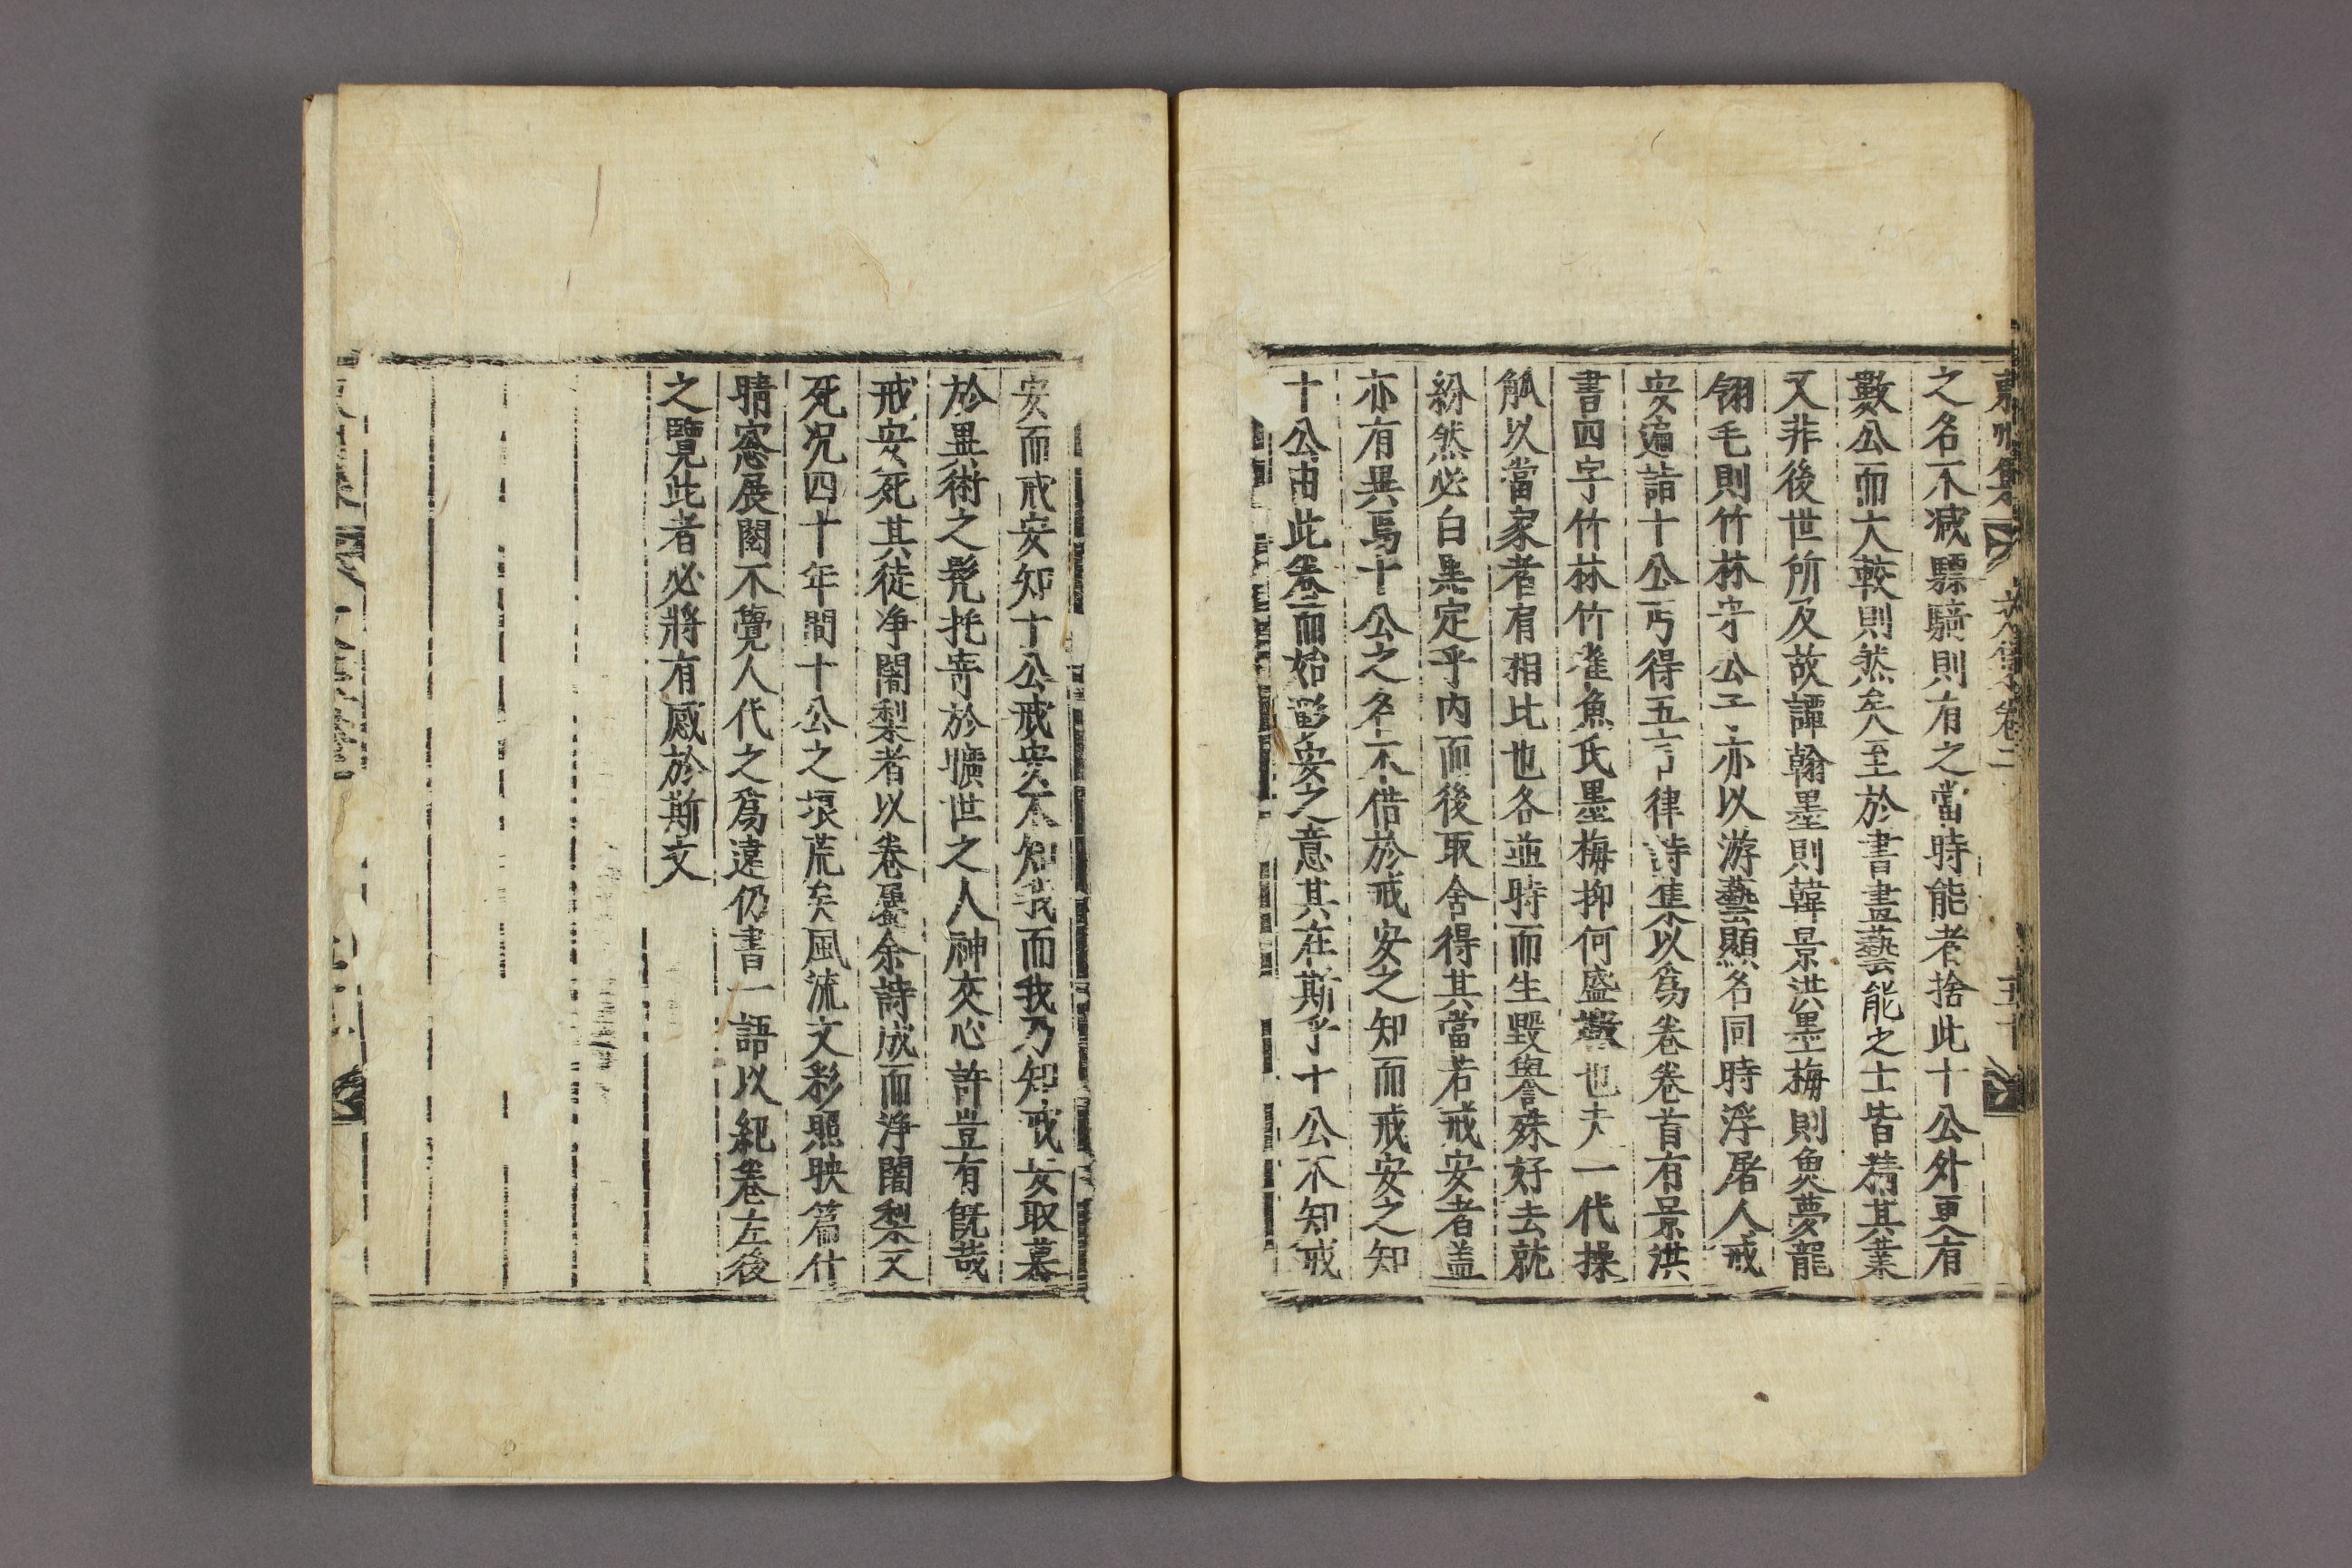 之名不减驃騎則有之當時能者捨此十公外更有
數公而大較則然矣至於書畫藝能之士皆精其業
又非後世所及故譚翰墨則韓景洪墨梅則魚夢龍
翎毛則竹林守公子、亦以游藝顯名同時浮屠人戒
安遍詣十公丐得五言律詩集以爲卷卷首有景洪
書四字竹林竹雀魚氏墨梅抑何盛歟也夫一代操
觚以當家者有相比也各並時而生毀譽殊好去就
紛然必白黑定乎內而後取舍得其當若戒安者盖
亦有異焉十公之名不借於戒安之知而戒安之知
十公由此卷而始彰安之意其在斯乎十公不知戒
安而戒安知十公戒安不知我而我乃知戒安取慕
於異術之髡托寄於曠世之人神交心許豈有旣哉
戒安死其徒净闍梨者以卷要余詩成而淨闍梨又
死况四十年間十公之垠荒矣風流文彩照映篇什
晴窓展閱不覺人代之爲遠仍書一語以紀卷左後
之覽此者必將有感於斯文